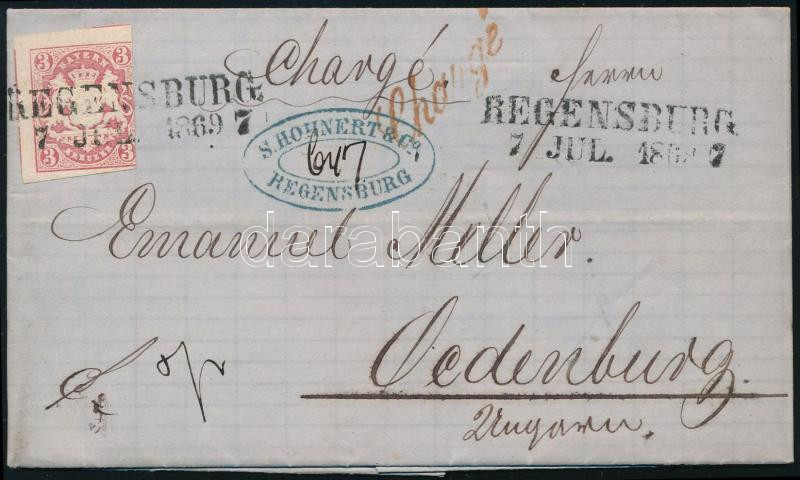 3 BAYERN 3
3 KREUZER 3
REGENSBURG
7 JUL. 1869 7
Chargé
Chargé
Herrn
REGENSBURG
7 JUL. 1869 7
S. HOHNERT & Co.
647
REGENSBURG
Emanuel Meller.
darabanth
Oedenburg.
Ungarn.